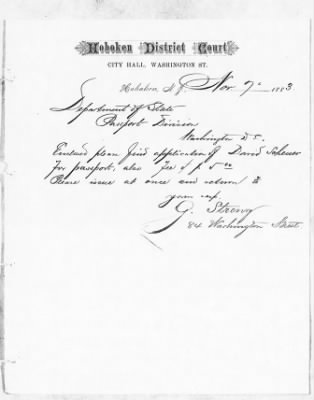 Hoboken District Court
CITY HALL, WASHINGTON ST.
Hoboken, N.J. Nov 7 1883
Department of State
Passport Division
Washington D.C.
Enclosed please find application of David
for passport, also fee of $ 5 00
Please issue at once and return to
yours resp.
G. Streng
84 Washington Street